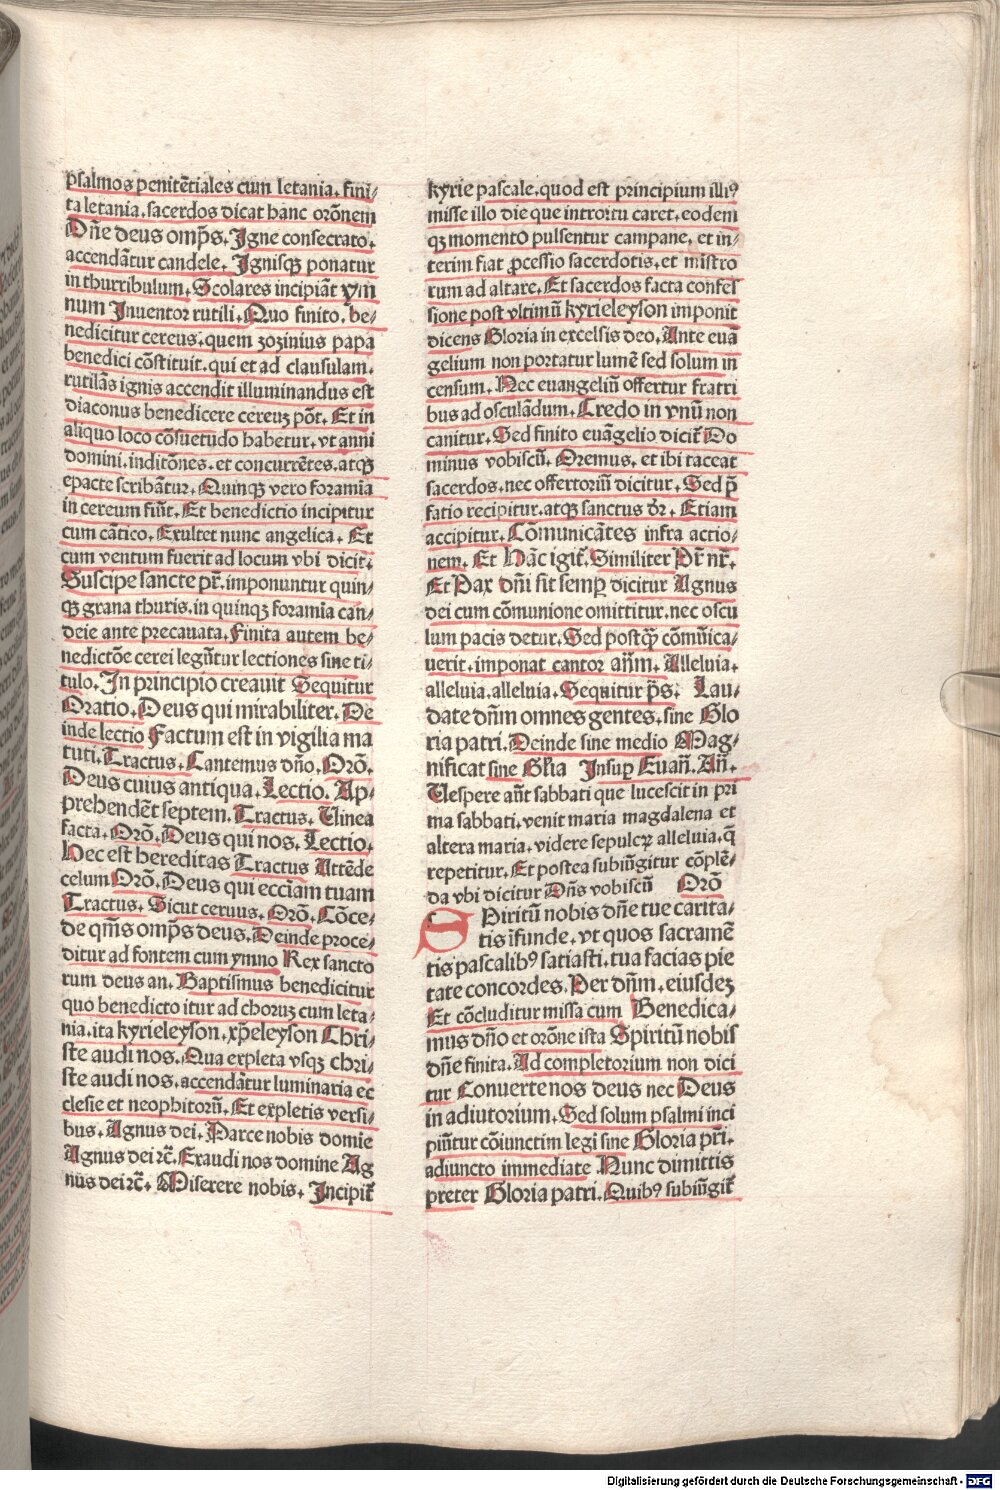 psalmos penitẽtiales cum letania. fini/
ta letania. sacerdos dicat hanc orõnem
Dñe deus omp̃s. Igne consecrato.
accendãtur candele. Ignisqꝫ ponatur
in thurribulum. Scolares incipiãt ym
num Inuentor rutili. Quo finito. be/
nedicitur cereus. quem zozinius papa
benedici cõstituit. qui et ad clausulam.
rutilãs ignis accendit illuminandus est
diaconus benedicere cereuꝫ põt. Et in
aliquo loco cõsuetudo habetur. vt anni
domini. inditõnes. et concurrẽtes. atqꝫ
epacte scribãtur. Quinqꝫ vero foramia
in cereum fiũt. Et benedictio incipitur
cum cãtico. Exultet nunc angelica. Et
cum ventum fuerit ad locum vbi dicit̃.
Suscipe sancte pr̃. imponuntur quin/
qꝫ grana thuris. in quinqꝫ foramia can/
deie ante precauata. Finita autem be/
nedictõe cerei legũtur lectiones sine ti/
tulo. In principio creauit Sequitur
Oratio. Deus qui mirabiliter. De
inde lectio Factum est in vigilia ma
tuti. Tractus. Cantemus dño. Orõ.
Deus cuius antiqua. Lectio. Ap/
prehendẽt septem. Tractus. Vinea
facta. Orõ. Deus qui nos. Lectio.
Hec est hereditas Tractus Attẽde
celum Orõ. Deus qui eccĩam tuam
Tractus. Sicut ceruus. Orõ. Cõce/
de qm̃s omp̃s deus. Deinde proce/
ditur ad fontem cum ymno Rex sancto
rum deus an. Baptismus benedicitur
quo benedicto itur ad choruꝫ cum leta/
nia. ita kyrieleyson. xp̃eleyson Chri/
ste audi nos. Qua expleta vsqꝫ chri/
ste audi nos. accendãtur luminaria ec
clesie et neophitorũ. Et expletis versi/
bus. Agnus dei. Parce nobis domie
Agnus dei ꝛc̃. Exaudi nos domine Ag
nus dei ꝛc̃. Miserere nobis. Incipit̃
kyrie pascale. quod est principium illiꝰ
misse illo die que introitu caret. eodem
qꝫ momento pulsentur campane. et in/
terim fiat ꝓcessio sacerdotis. et mĩstro
rum ad altare. Et sacerdos facta confes
sione post vltimũ kyrieleyson imponit
dicens Gloria in excelsis deo. Ante euã
gelium non portatur lumẽ sed solum in
censum. Nec euangeliũ offertur fratri
bus ad osculãdum. Credo in vnũ non
canitur. Sed finito euãgelio dicit̃ Do
minus vobiscũ. Oremus. et ibi taceat
sacerdos. nec offertoriũ dicitur. Sed p̃
fatio recipitur. atqꝫ sanctus dr̃. Etiam
accipitur. Cõmunicãtes infra actio/
nem. Et Hãc igit̃. Similiter Pr̃ nr̃.
Et Pax dñi sit semꝑ dicitur Agnus
dei cum cõmunione omittitur. nec oscu
lum pacis detur. Sed postqꝫ̃ cõmũica/
uerit. imponat cantor añm. Alleluia.
alleluia. alleluia. Sequitur p̃s. Lau/
date dñm omnes gentes. sine Glo
ria patri. Deinde sine medio Mag/
nificat sine Gl̃ia Insuꝑ Euañ. Añ.
Vespere aũt sabbati que lucescit in pri
ma sabbati. venit maria magdalena et
altera maria. videre sepulcꝝ alleluia. q̃
repetitur. Et postea subiũgitur cõplẽ/
da vbi dicitur Dñs vobiscũ Orõ
Spiritũ nobis dñe tue carita/
tis ĩfunde. vt quos sacramẽ
tis pascalibꝰ satiasti. tua facias pie
tate concordes. Per dñm. eiusdeꝫ
Et cõcluditur missa cum Benedica/
mus dño et orõne ista Spiritũ nobis
dñe finita. Ad completorium non dici
tur Conuerte nos deus nec Deus
in adiutorium. Sed solum psalmi inci
piũtur cõiunctim legi sine Gloria pr̃i.
adiuncto immediate Nunc dimittis
preter Gloria patri. Quibꝰ subiũgit̃
Digitalisierung gefördert durch die Deutsche Forschungsgemeinschaft - DFG